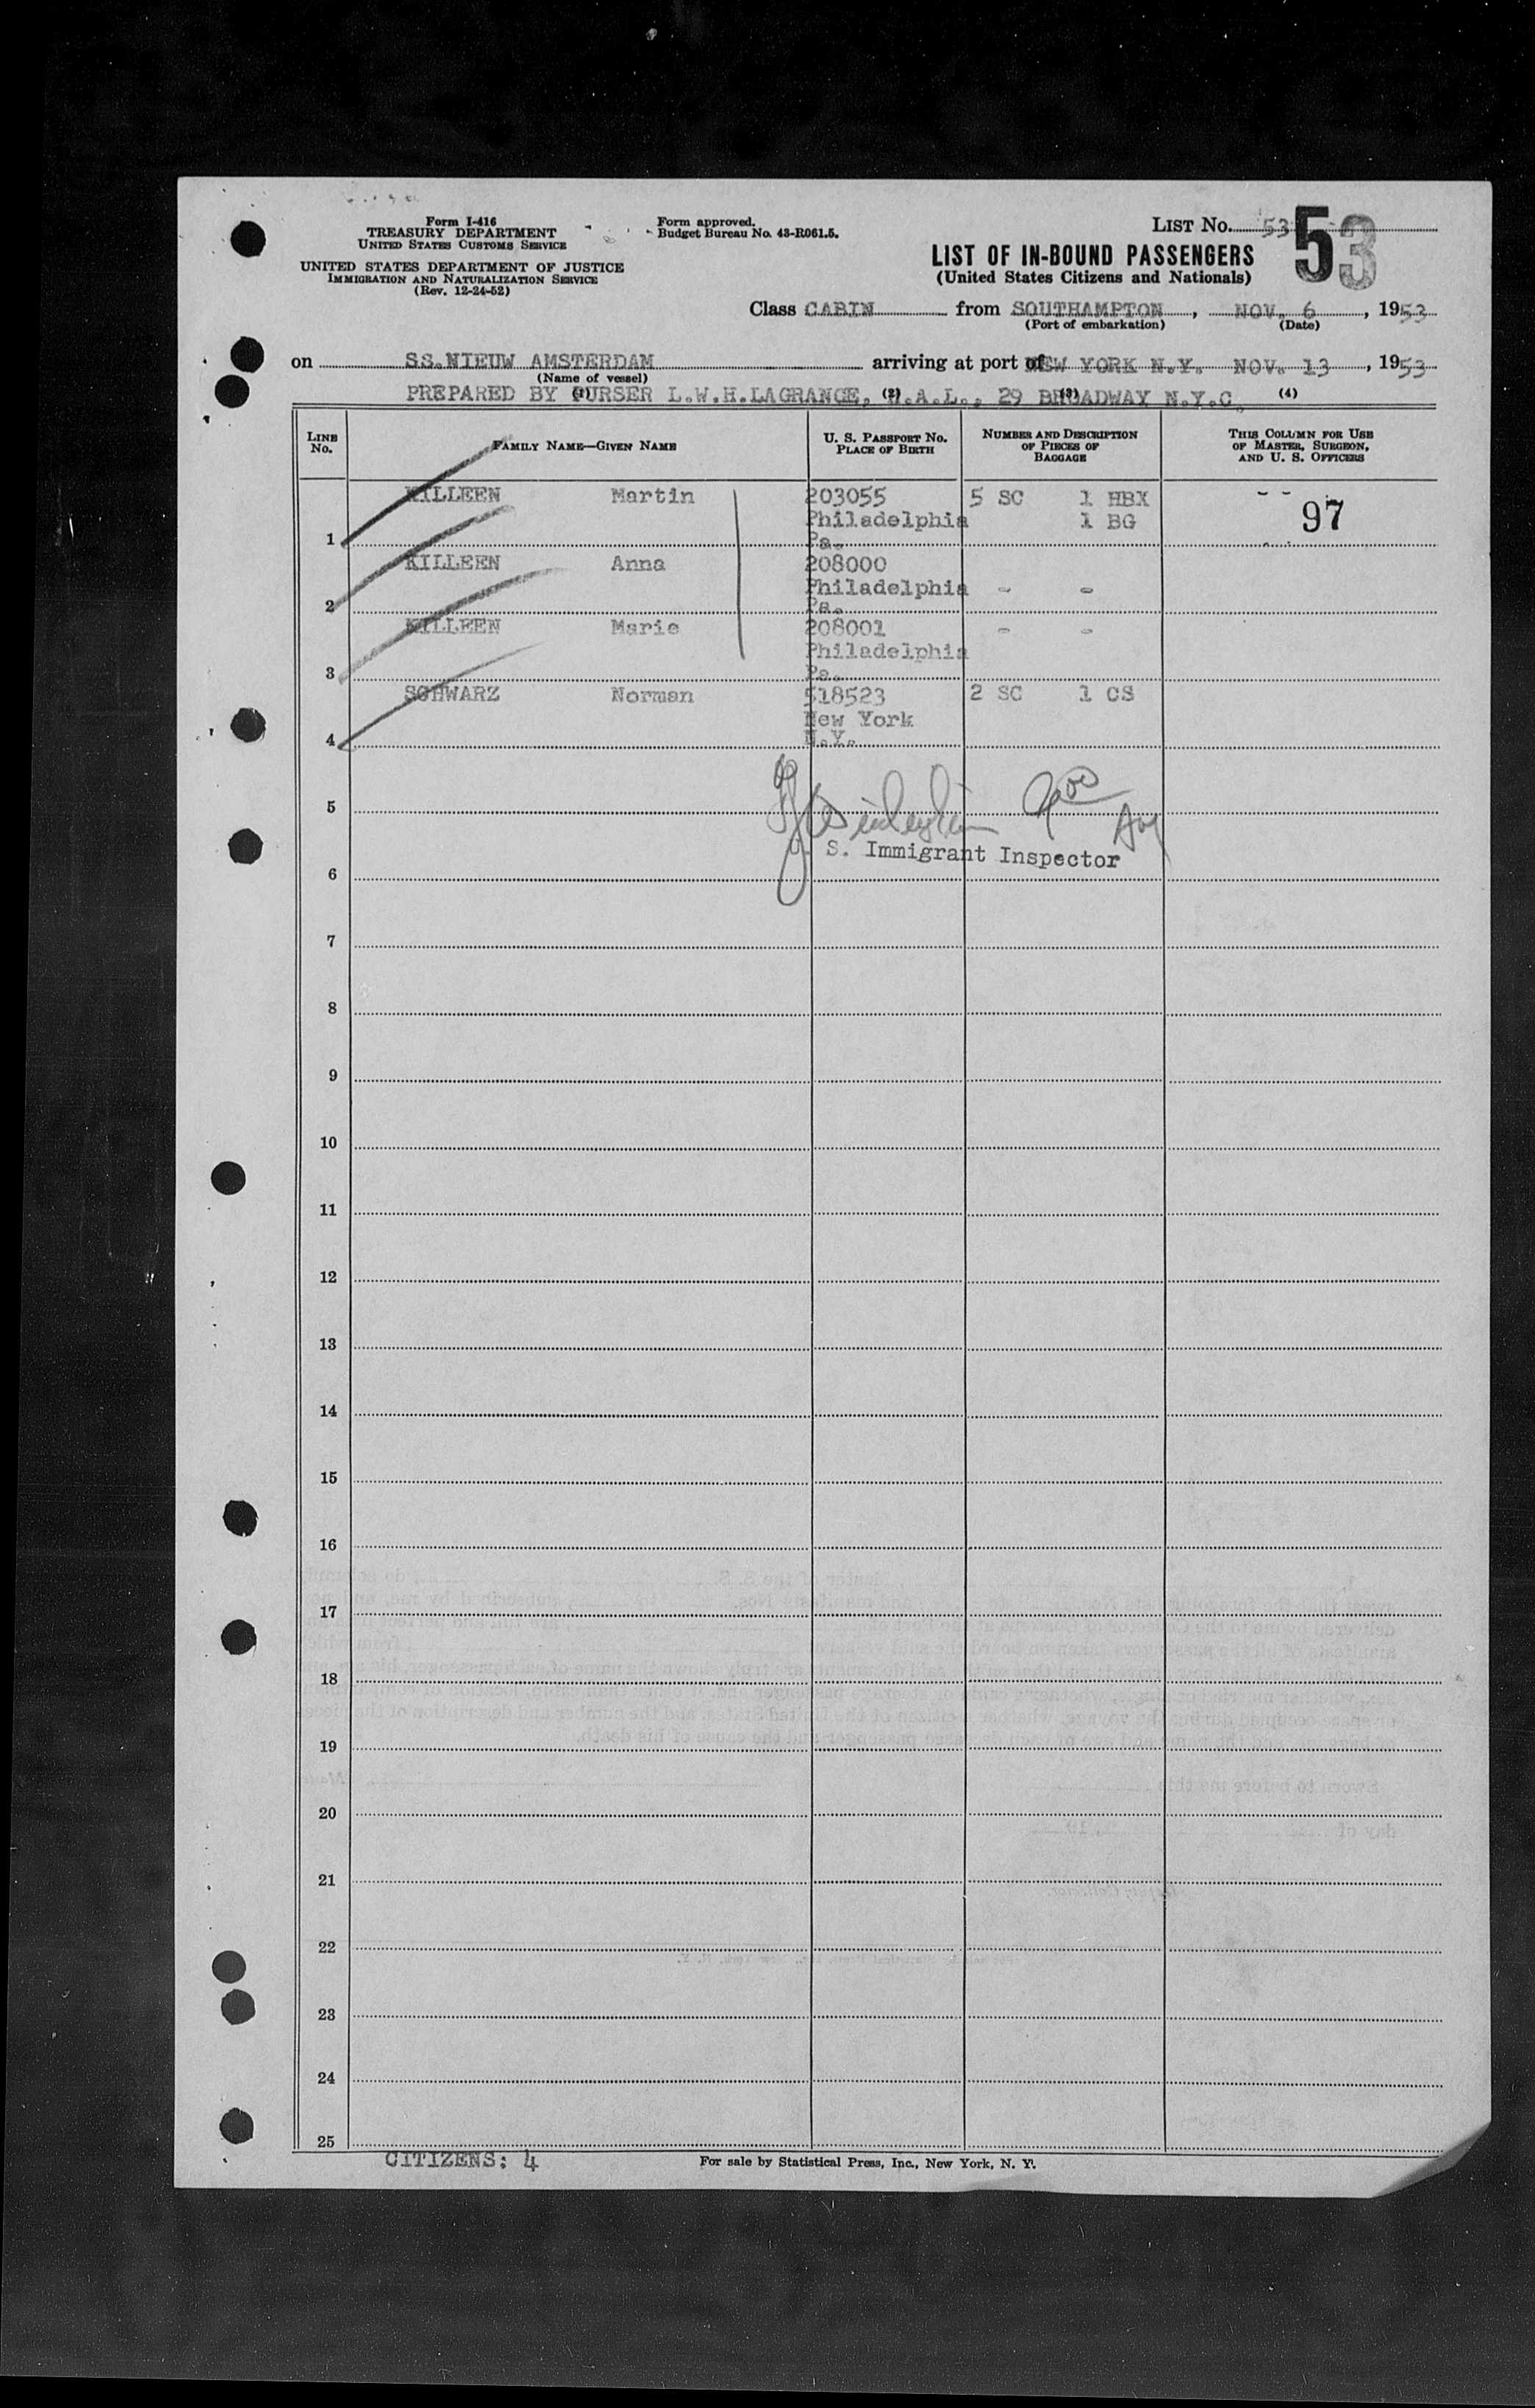 Form I-416
TREASURY DEPARTMENT
UNITED STATES CUSTOMS SERVICE
UNITED STATES DEPARTMENT OF JUSTICE
IMMIGRATION AND NATURALIZATION SERVICE
(Rev. 12-24-52)
Form approved.
Budget Bureau No. 43-R061.5.
LIST No. 53
53
LIST OF IN-BOUND PASSENGERS
(United States Citizens and Nationals)
Class CABIN from SOUTHAMPTON, NOV. 6, 1953
(Port of embarkation) (Date)
on SS.NIEUW AMSTERDAM arriving at port of NEW YORK N.Y. NOV. 13, 1953
(Name of vessel)
PREPARED BY PURSER L.W.H.LAGRANGE, H.A.L., 29 BROADWAY N.Y.C.
(1) (2) (3) (4)
LINE No. FAMILY NAME—GIVEN NAME U. S. PASSPORT No. PLACE OF BIRTH NUMBER AND DESCRIPTION OF PIECES OF BAGGAGE THIS COLUMN FOR USE OF MASTER, SURGEON, AND U. S. OFFICERS
KILLEEN Martin 203055 5 SC 1 HBX 97
Philadelphia 1 BG
1 Pa.
KILLEEN Anna 208000
Philadelphia - -
2 Pa.
KILLEEN Marie 208001 - -
Philadelphia
3 Pa.
SCHWARZ Norman 518523 2 SC 1 CS
New York
4 N.Y.
5
U. S. Immigrant Inspector
6
7
8
9
10
11
12
13
14
15
16
17
18
19
20
21
22
23
24
25
CITIZENS: 4
For sale by Statistical Press, Inc., New York, N. Y.